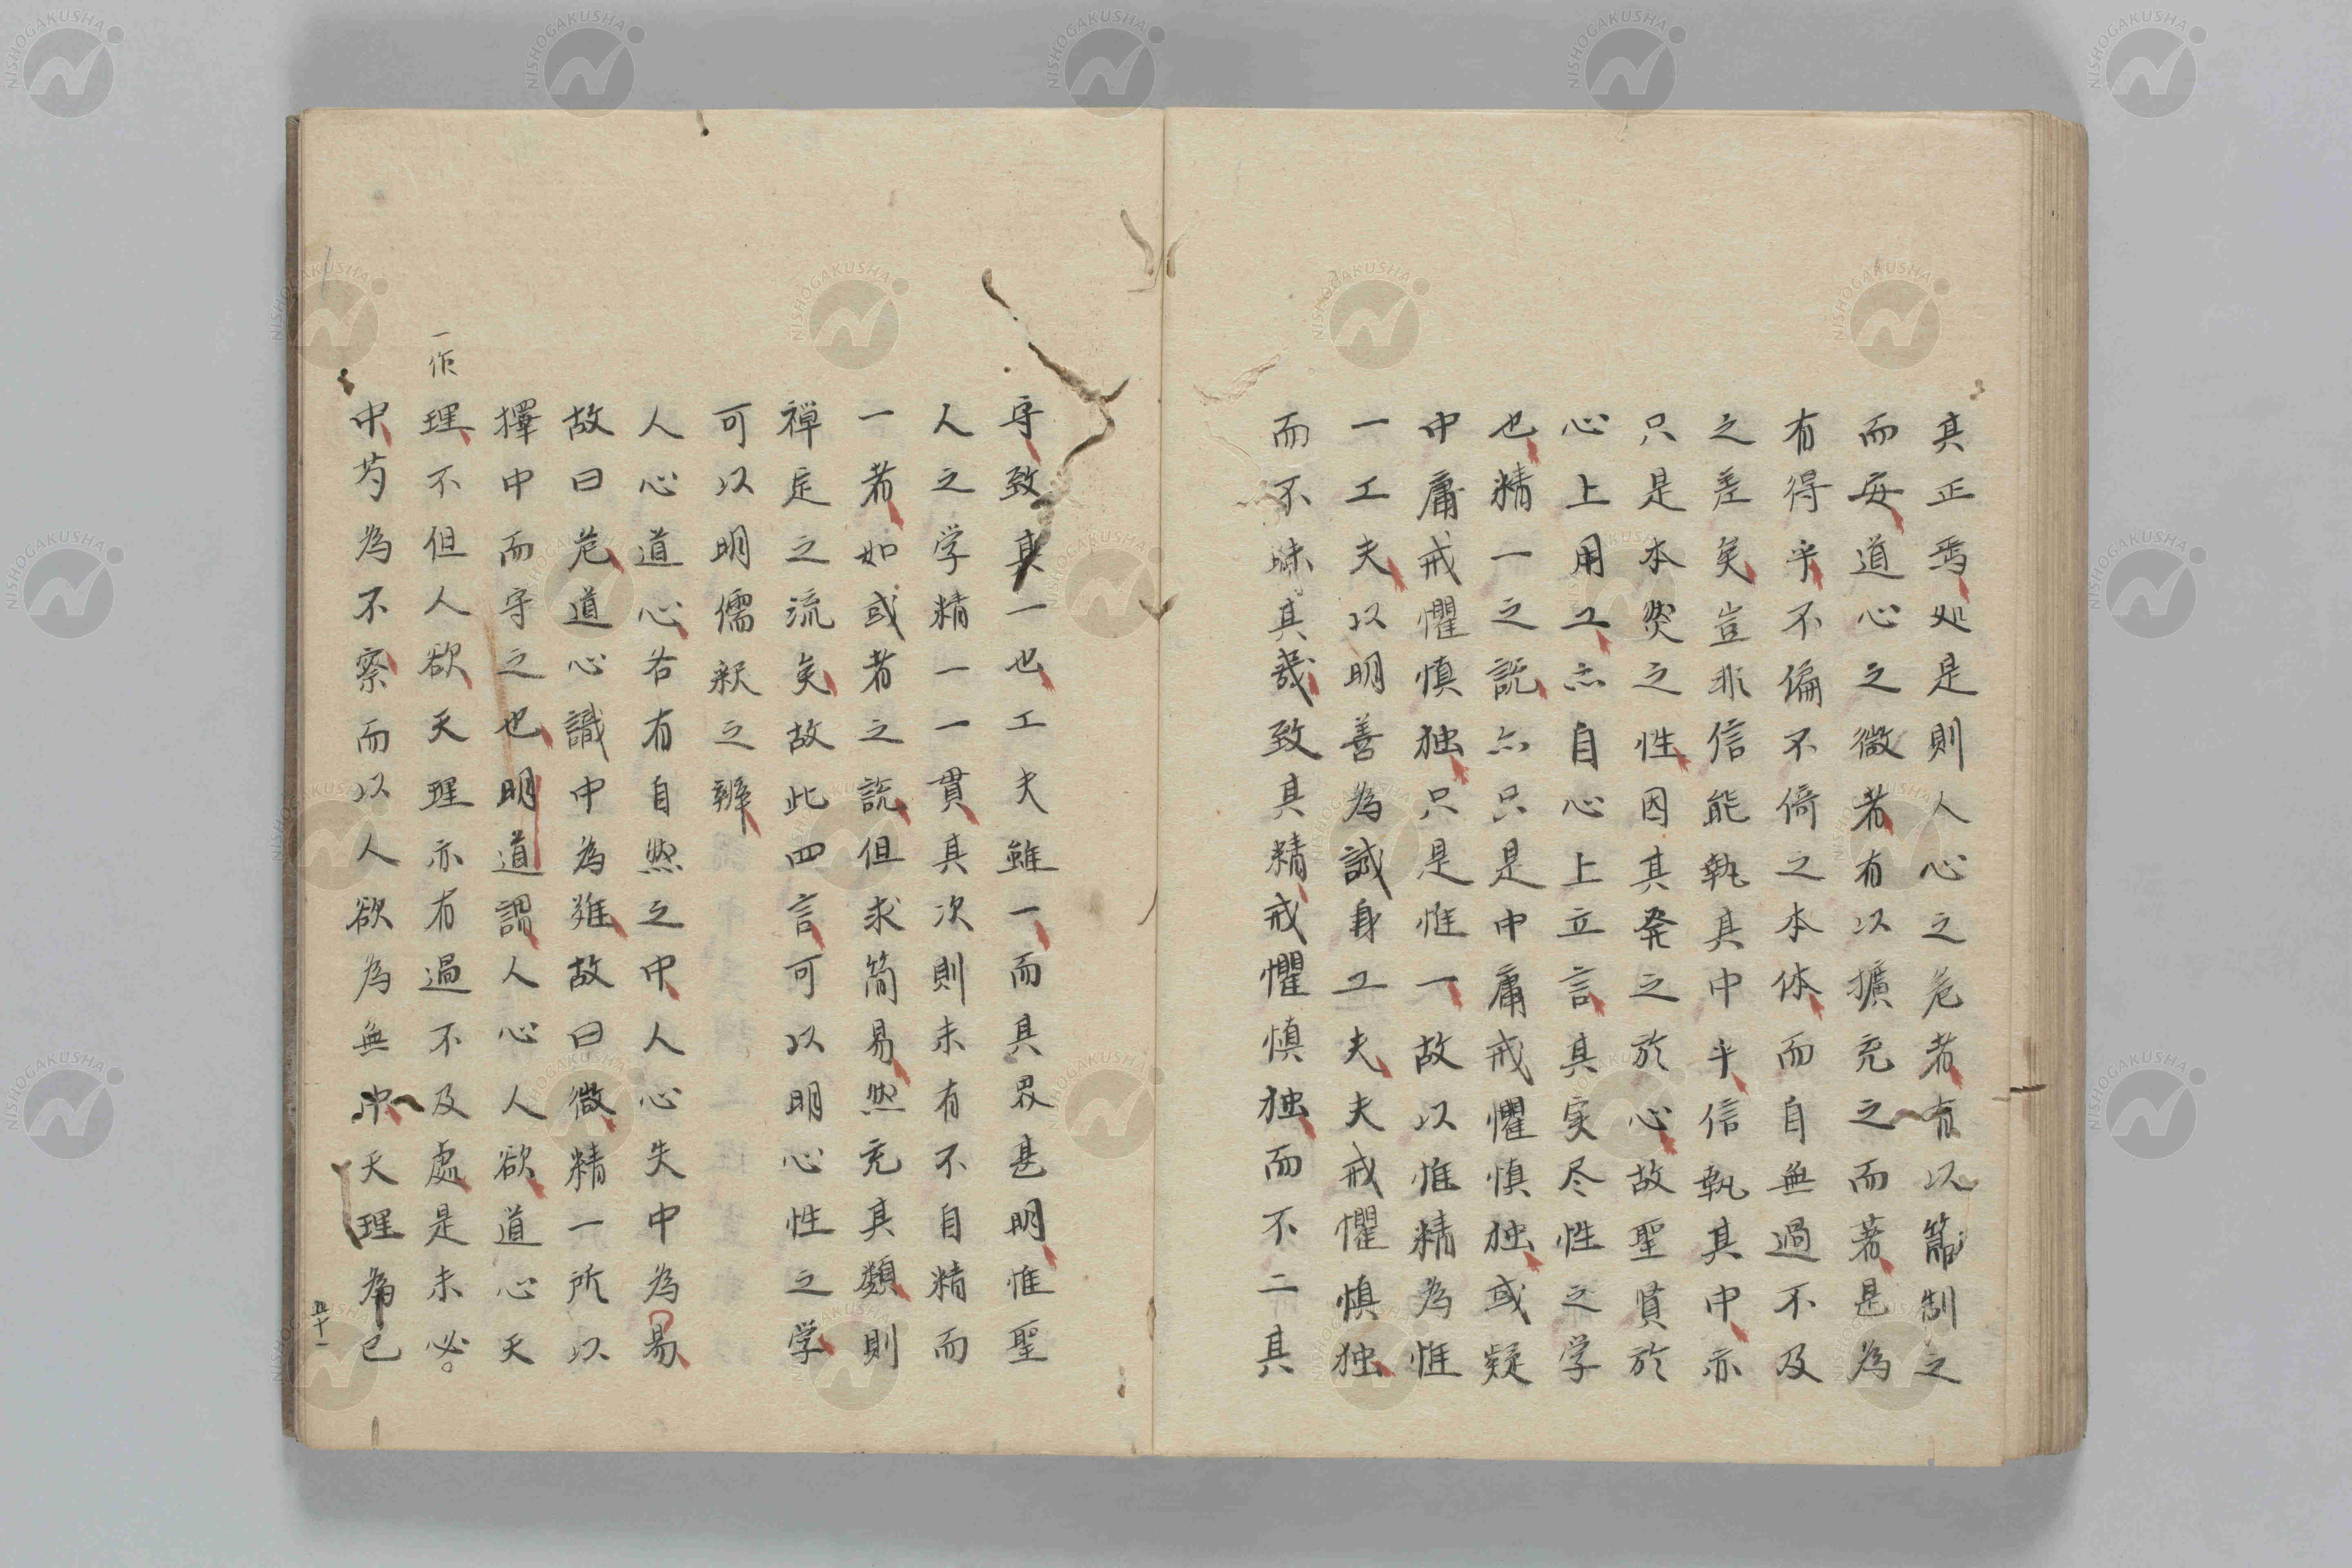 其正焉処是則人心之危者有以節制之
而安道心之微者有以擴充之而著是為
有得乎不偏不倚之本体而自無過不及
之差矣豈非信能執其中乎信執其中亦
只是本然之性因其発之於心故聖賢於
心上用工亦自心上立言其実尽性之学
也精一之説亦只是中庸戒懼慎独或疑
中庸戒懼慎独只是惟一故以惟精為惟
一工夫以明善為誠身工夫夫戒懼慎独
而不昧其幾致其精戒懼慎独而不二其
守致其一也工夫雖一而其界甚明惟聖
人之学精一一貫其次則未有不自精而
一者如或者之説但求簡易然充其類則
禅定之流矣故此四言可以明心性之学
可以明儒釈之辨
人心道心各有自然之中人心失中為易
故曰危道心識中為難故曰微精一所以
擇中而守之也明道謂人心人欲道心天
一作
理不但人欲天理亦有過不及處是未必
中芍為不察而以人欲為無中天理為已
五十一
NISHOGAKUSHA